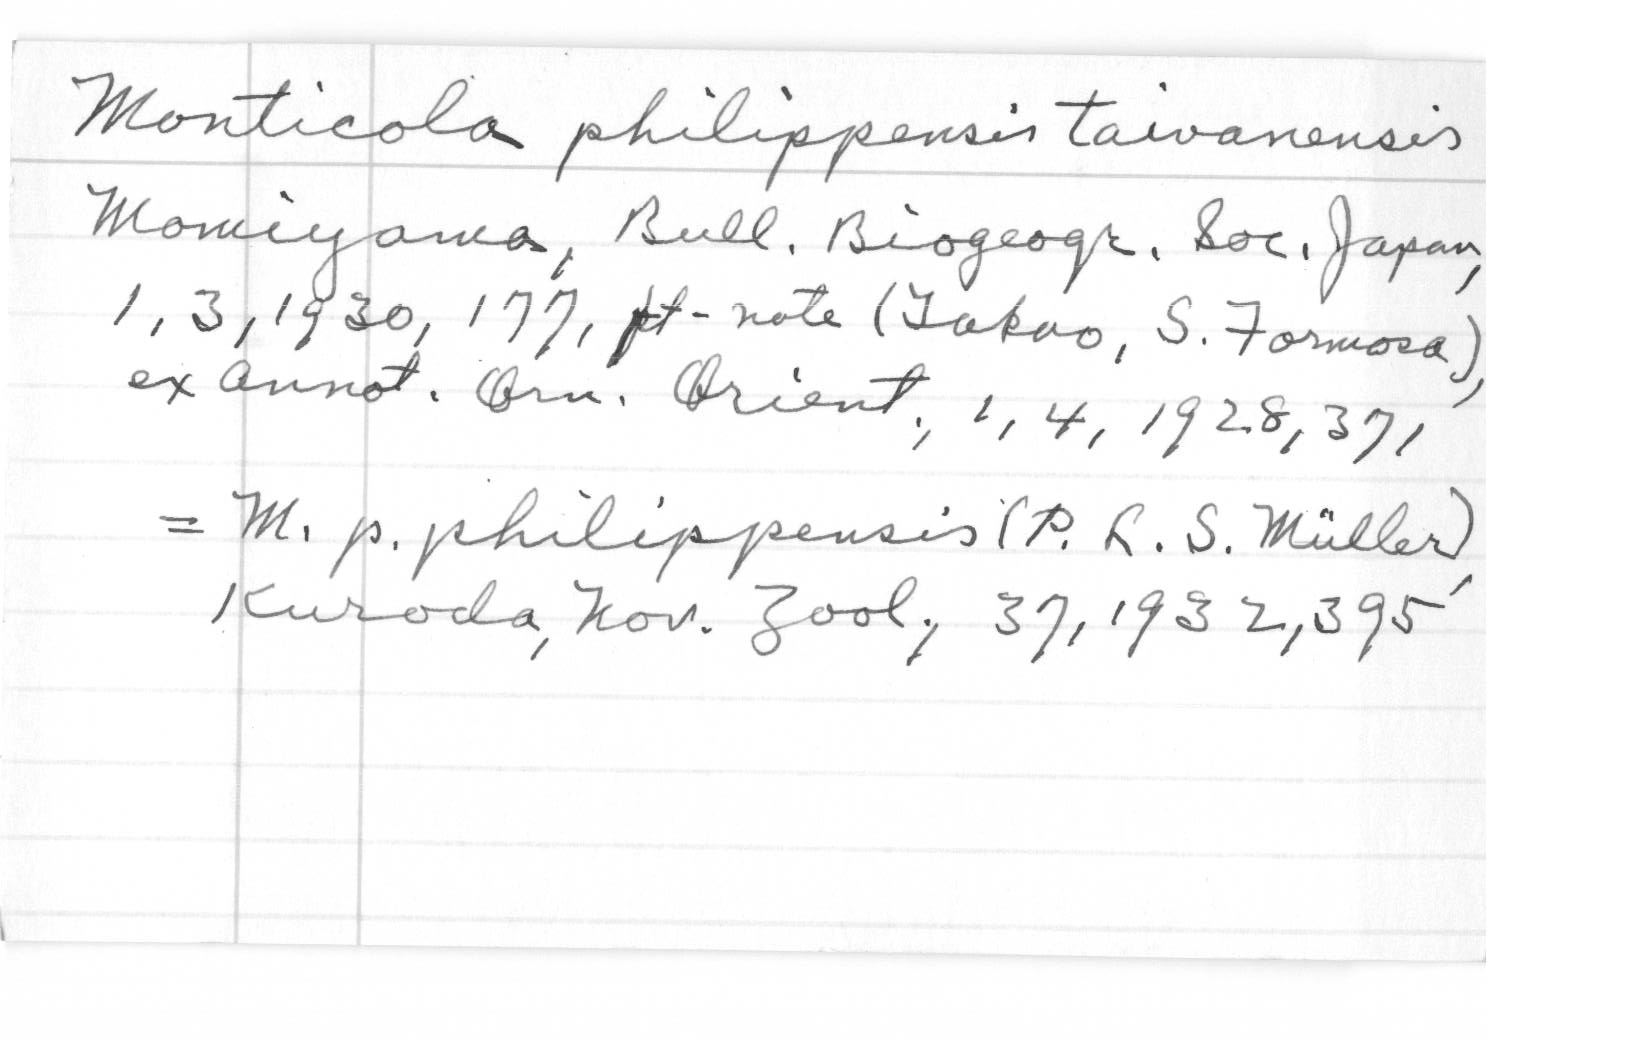 Monticola philippensis taivanensis
Momiyama, Bull. Biogeogr. Soc. Japan,
1, 3, 1930, 177, ft-note (Takao, S. Formosa),
ex Annot. Orn. Orient., 1, 4, 1928, 371
= M. p. philippensis (P. L. S. Müller)
Kuroda, Nov. Zool., 37, 1932, 395